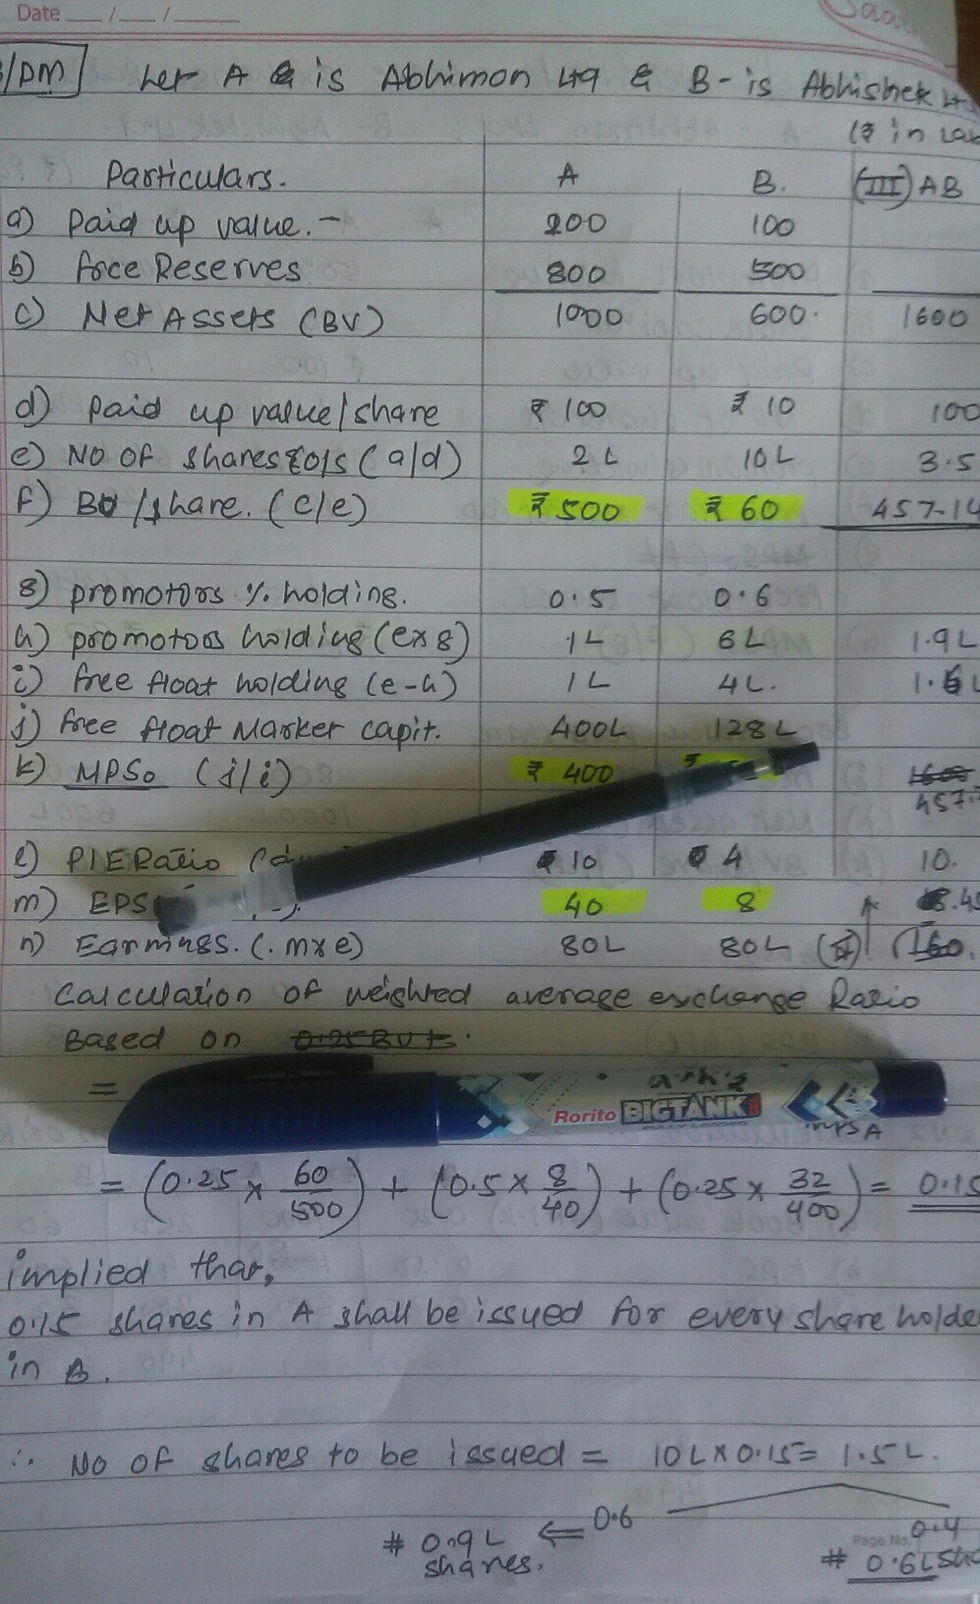 Date __/__/____
/DM Let A is Abhiman Ltd & B- is Abhishek
(₹ in La
Particulars. A B. (III) AB
a) Paid up value. - 200 100
b) free Reserves 800 500
c) Net Assets (BV) 1000 600. 1600
d) Paid up value/share ₹ 100 ₹ 10 100
e) NO OF Shares (a/d) 2 L 10 L 3.5
f) BV/share. (c/e) ₹ 500 ₹ 60 457.14
g) promotors % holding. 0.5 0.6
h) promotors holding (exg) 1L 6L 1.9 L
i) free float holding (e-h) 1 L 4 L. 1.6 L
j) free float Market capit. 400L 128 L
k) MPSo (j/i) ₹ 400
457.
l) P/E Ratio 10 4 10.
m) EPS 40 8
n) Earnings. (.mxe) 80L 80L
Calculation of weighted average exchange Ratio
Based on
=
Rorito BIGTANK
MPS A
= (0.25 x 60/500) + (0.5 x 8/40) + (0.25 x 32/400) = 0.15
implied that,
0.15 shares in A shall be issued for every share holde
in B.
∴ No OF shares to be issued = 10L x 0.15 = 1.5 L.
# 0.9 L ⇐ 0.6 0.4
shares. Page No.
# 0.6L Sha